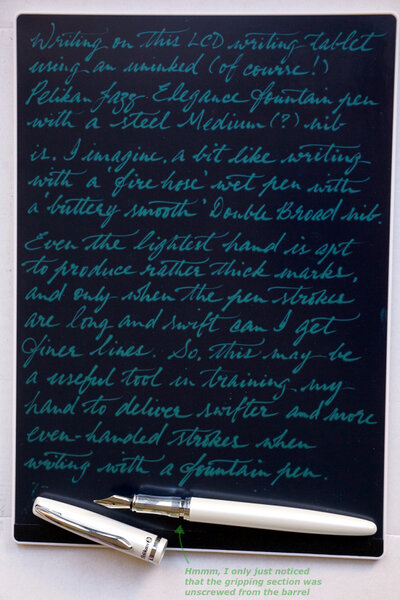 Writing on this LCD writing tablet
using an uninked (of course!)
Pelikan Jazz Elegance fountain pen
with a steel Medium (?) nib
is, I imagine, a bit like writing
with a 'fire hose' wet pen with
a 'buttery smooth' Double Broad nib.
Even the lightest hand is apt
to produce rather thick marks,
and only when the pen strokes
are long and swift can I get
finer lines. So, this may be
a useful tool in training my
hand to deliver swifter and more
even-handed strokes when
writing with a fountain pen.
Hmmm, I only just noticed
that the gripping section was
unscrewed from the barrel